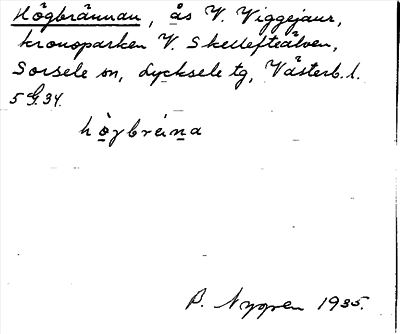 Högbrännan, ås V. Viggejaur,
kronoparken V. Skellefteälven,
Sorsele sn, Lycksele tg, Västerb. l.
5 G. 34.
högbreina
B. Nygren 1935.